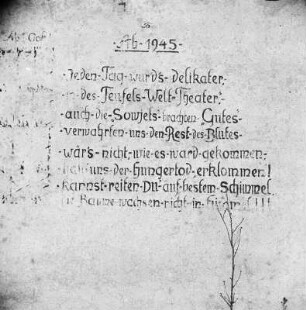 Ab-1945-
jeden-Tag-wurds-delikater,
in-des Teufels-Welt-Theater!
auch-die-Sowjets-brachten Gutes-
verwahrten-uns-den-Rest-des-Blutes-
wärs-nicht,-wie-es-ward-gekommen,-
uns-der-Hungertod-erklommen!
kannst-reiten-Du-auf-bestem-Schimmel
Bäume-wachsen-nicht-in-